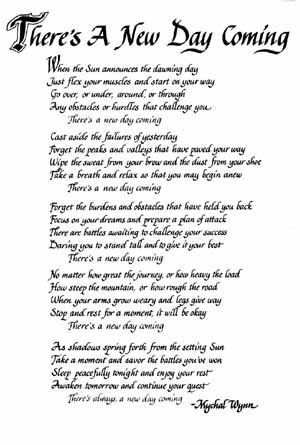 There's A New Day Coming
When the Sun announces the dawning day
Just flex your muscles and start on your way
Go over, or under, around, or through
Any obstacles or hurdles that challenge you
There's a new day coming
Cast aside the failures of yesterday
Forget the peaks and valleys that have paved your way
Wipe the sweat from your brow and the dust from your shoe
Take a breath and relax so that you may begin anew
There's a new day coming
Forget the burdens and obstacles that have held you back
Focus on your dreams and prepare a plan of attack
There are battles awaiting to challenge your success
Daring you to stand tall and to give it your best
There's a new day coming
No matter how great the journey, or how heavy the load
How steep the mountain, or how rough the road
When your arms grow weary and legs give way
Stop and rest for a moment, it will be okay
There's a new day coming
As shadows spring forth from the setting Sun
Take a moment and savor the battles you've won
Sleep peacefully tonight and enjoy your rest
Awaken tomorrow and continue your quest
There's always, a new day coming
-Mychal Wynn